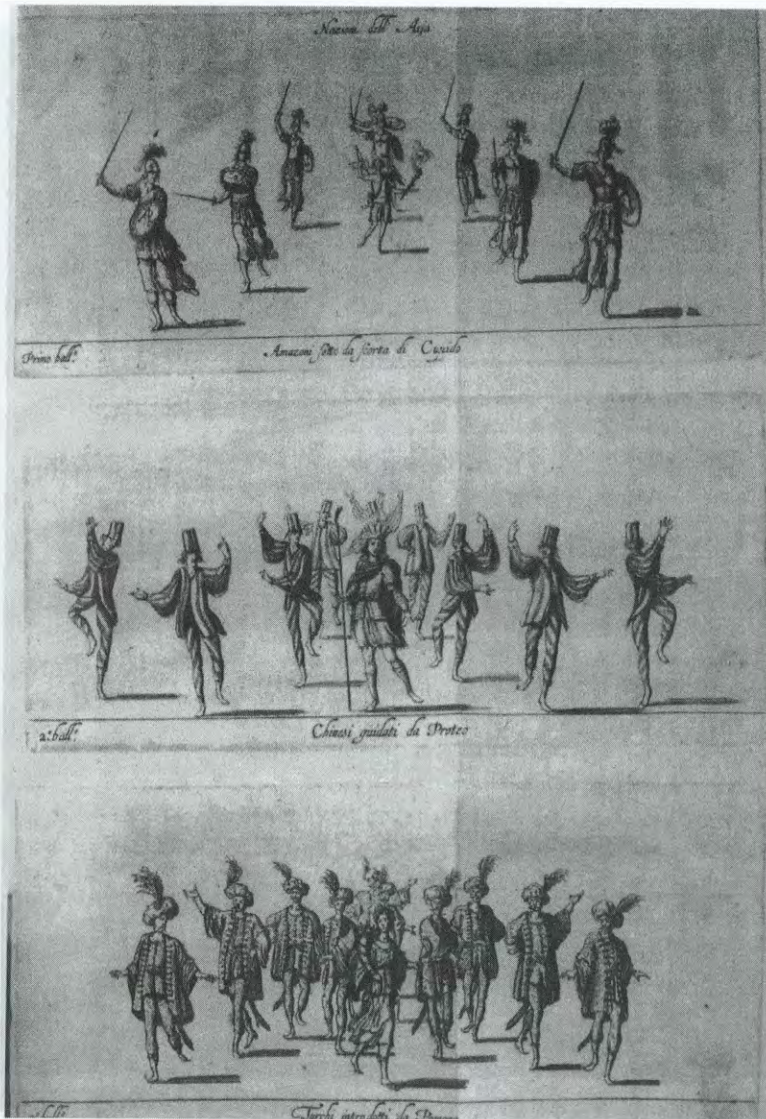 Nationi dell' Asia
Primo ball.º
Amazoni sotto la scorta di Cupido
2.º ball.º
Chinesi guidati da Proteo
ball.º
Turchi introdotti da